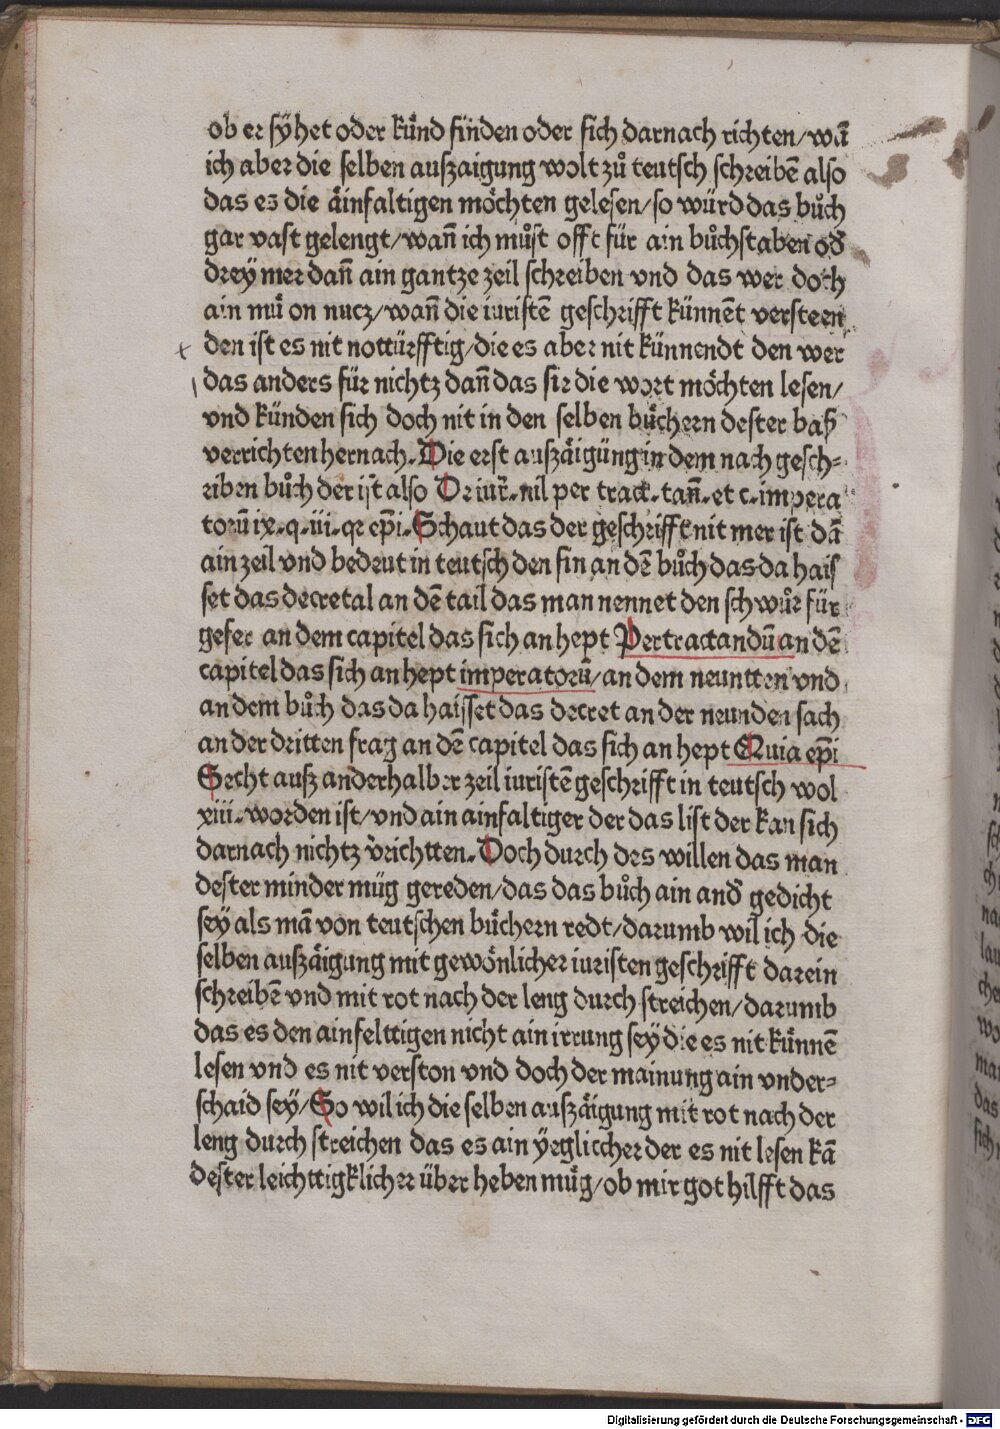 ob er sÿhet oder kůnd finden oder sich darnach richten/wā
ich aber die selben auſzaigung wolt zů teutsch schreibē also
das es die ainfaltigen möchten gelesen/so würd das bůch
gar vast gelengt/wañ ich můst offt für ain bůchstaben od̄
dreÿ mer dañ ain gantze zeil schreiben vnd das wer doch
ain mů on nucz/wañ die iuristē geschrifft künnēt versteen
den ist es nit nottürfftig/die es aber nit künnendt den wer
das anders für nichtz dañ das sir die wort möchten lesen/
vnd künden sich doch nit in den selben bůchern dester baß
verrichten hernach. Die erst auſzäigüng in dem nach gesch⸗
riben bůch der ist also De iur̄. nil per tract. tañ. et c. impera
torū ix. q. iii. qr ep̄i. Schaut das der geschrifft nit mer ist dā
ain zeil vnd bedeut in teutsch den sin an dē bůch das da hais
set das decretal an dē tail das man nennet den schwůr für
gefer an dem capitel das sich an hept Pertractandū an dē
capitel das sich an hept imperatorū/an dem neuntten vnd
an dem bůch das da haisset das decret an der neunden sach
an der dritten frag an dē capitel das sich an hept Quia ep̄i
Secht auſz anderhalber zeil iuristē geschrifft in teutsch wol
xiii. worden ist/vnd ain ainfaltiger der das list der kan sich
darnach nichtz v̄richtten. Doch durch des willen das man
dester minder müg gereden/das das bůch ain and̄ gedicht
seÿ als mā von teutschen bůchern redt/darumb wil ich die
selben auſzäigung mit gewönlicher iuristen geschrifft darein
schreibē vnd mit rot nach der leng durch streichen/darumb
das es den ainfelttigen nicht ain irrung seÿ die es nit kůnnē
lesen vnd es nit verston vnd doch der mainung ain vnder⸗
schaid seÿ/So wil ich die selben auſzäigung mit rot nach der
leng durch streichen das es ain ÿegliccher der es nit lesen kā
dester leichttigklicher über heben můg/ob mir got hilfft das
Digitalisierung gefördert durch die Deutsche Forschungsgemeinschaft - DFG